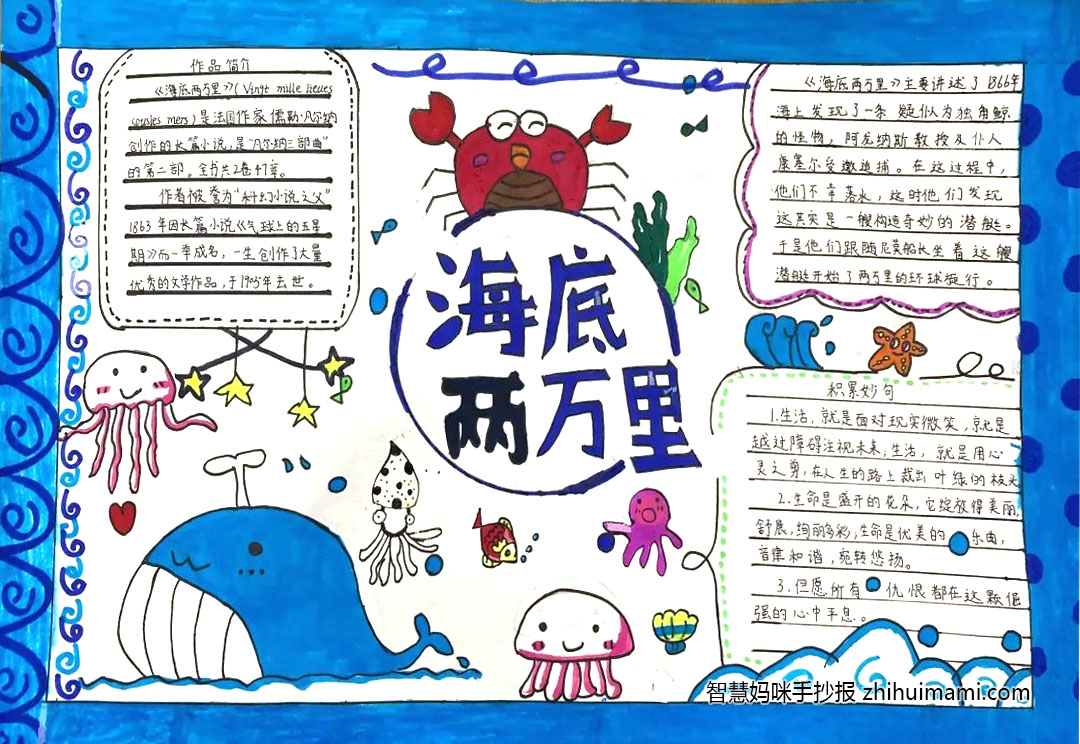 作品简介
《海底两万里》(Vingt mille lieues
sousles mers)是法国作家儒勒·凡尔纳
创作的长篇小说,是"凡尔纳三部曲"
的第二部。全书共2卷47章。
作者被誉为"科幻小说之父"
1863年因长篇小说《气球上的五星
期》而一举成名,一生创作了大量
优秀的文学作品,于1905年去世。
海底
两万里
《海底两万里》主要讲述了1866年
海上发现了一条疑似为独角鲸
的怪物,阿龙纳斯教授及仆人
康塞尔受邀追捕。在这过程中,
他们不幸落水,这时他们发现
这其实是一艘构造奇妙的潜艇。
于是他们跟随尼莫船长坐着这艘
潜艇开始了两万里的环球旅行。
积累妙句
1.生活,就是面对现实微笑,就是
越过障碍注视未来;生活,就是用心
灵之剪,在人生的路上裁出叶绿的枝头
2.生命是盛开的花朵,它绽放得美丽,
舒展,绚丽多彩,生命是优美的乐曲,
音律和谐,宛转悠扬。
3.但愿所有仇恨都在这颗倔
强的心中平息。
智慧妈咪手抄报 zhihuimami.com